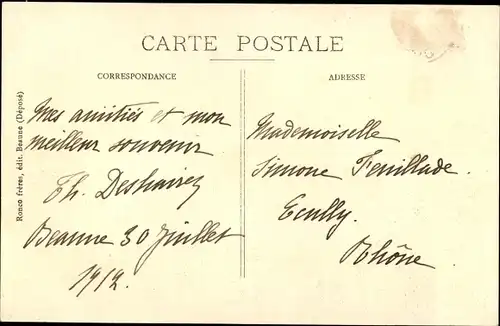 CARTE POSTALE
CORRESPONDANCE
ADRESSE
Ronco frères, édit. Beaune (Déposé)
Mes amitiés et mon
meilleur souvenir
Th. Deshaires
Beaune 30 Juillet
1912.
Mademoiselle
Simone Feuillade.
Ecully.
Rhône